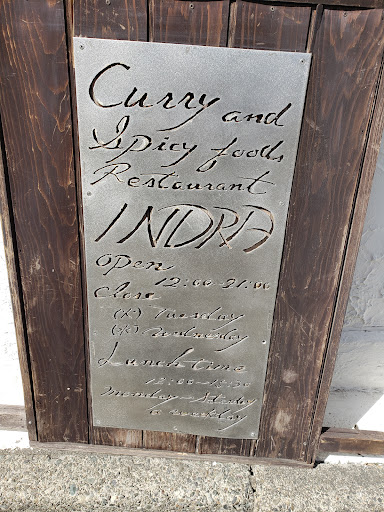 Curry and
Spicy foods
Restaurant
INDRA
open
12:00-21:00
Close
Tuesday
Wednesday
Lunch time
Monday
a weekday